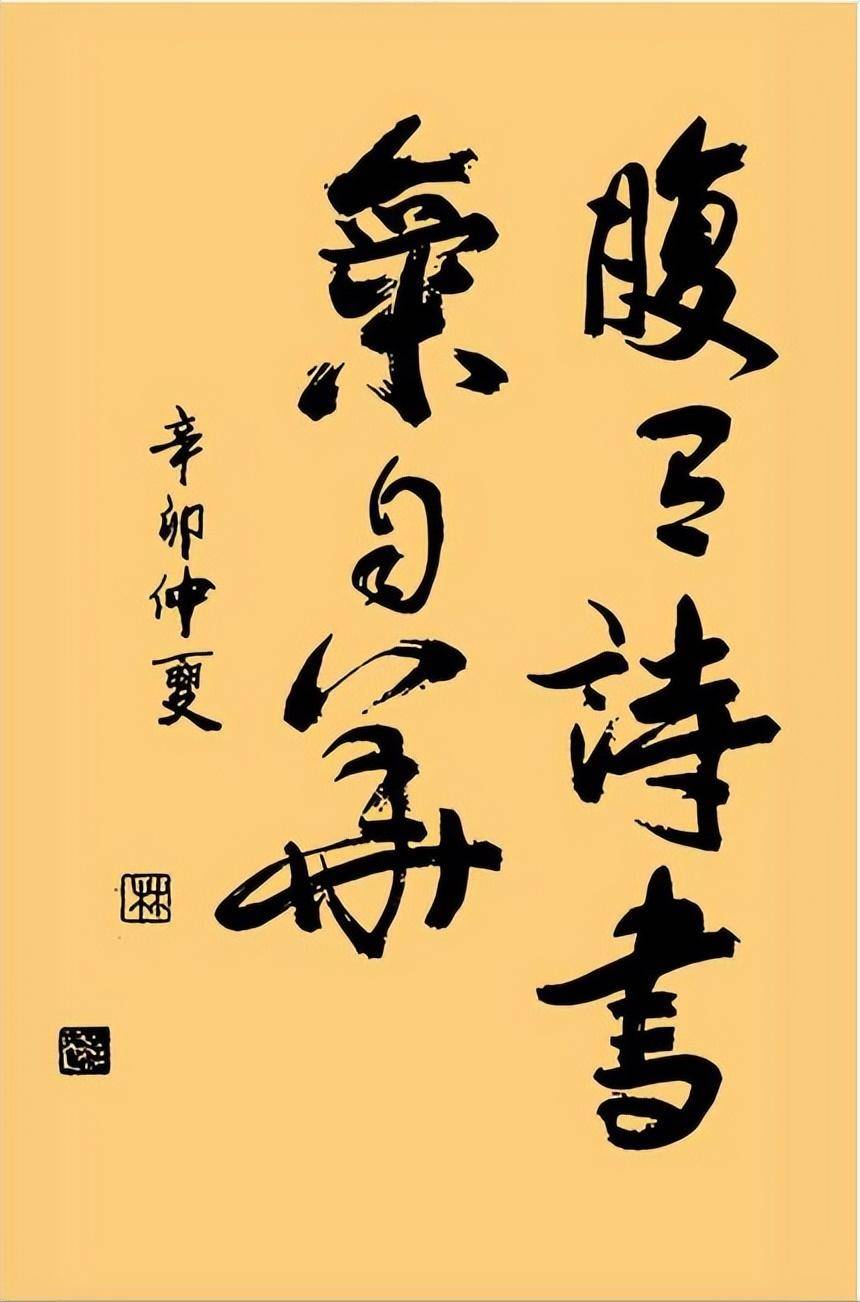 腹有詩書
氣自華
辛卯仲夏
林